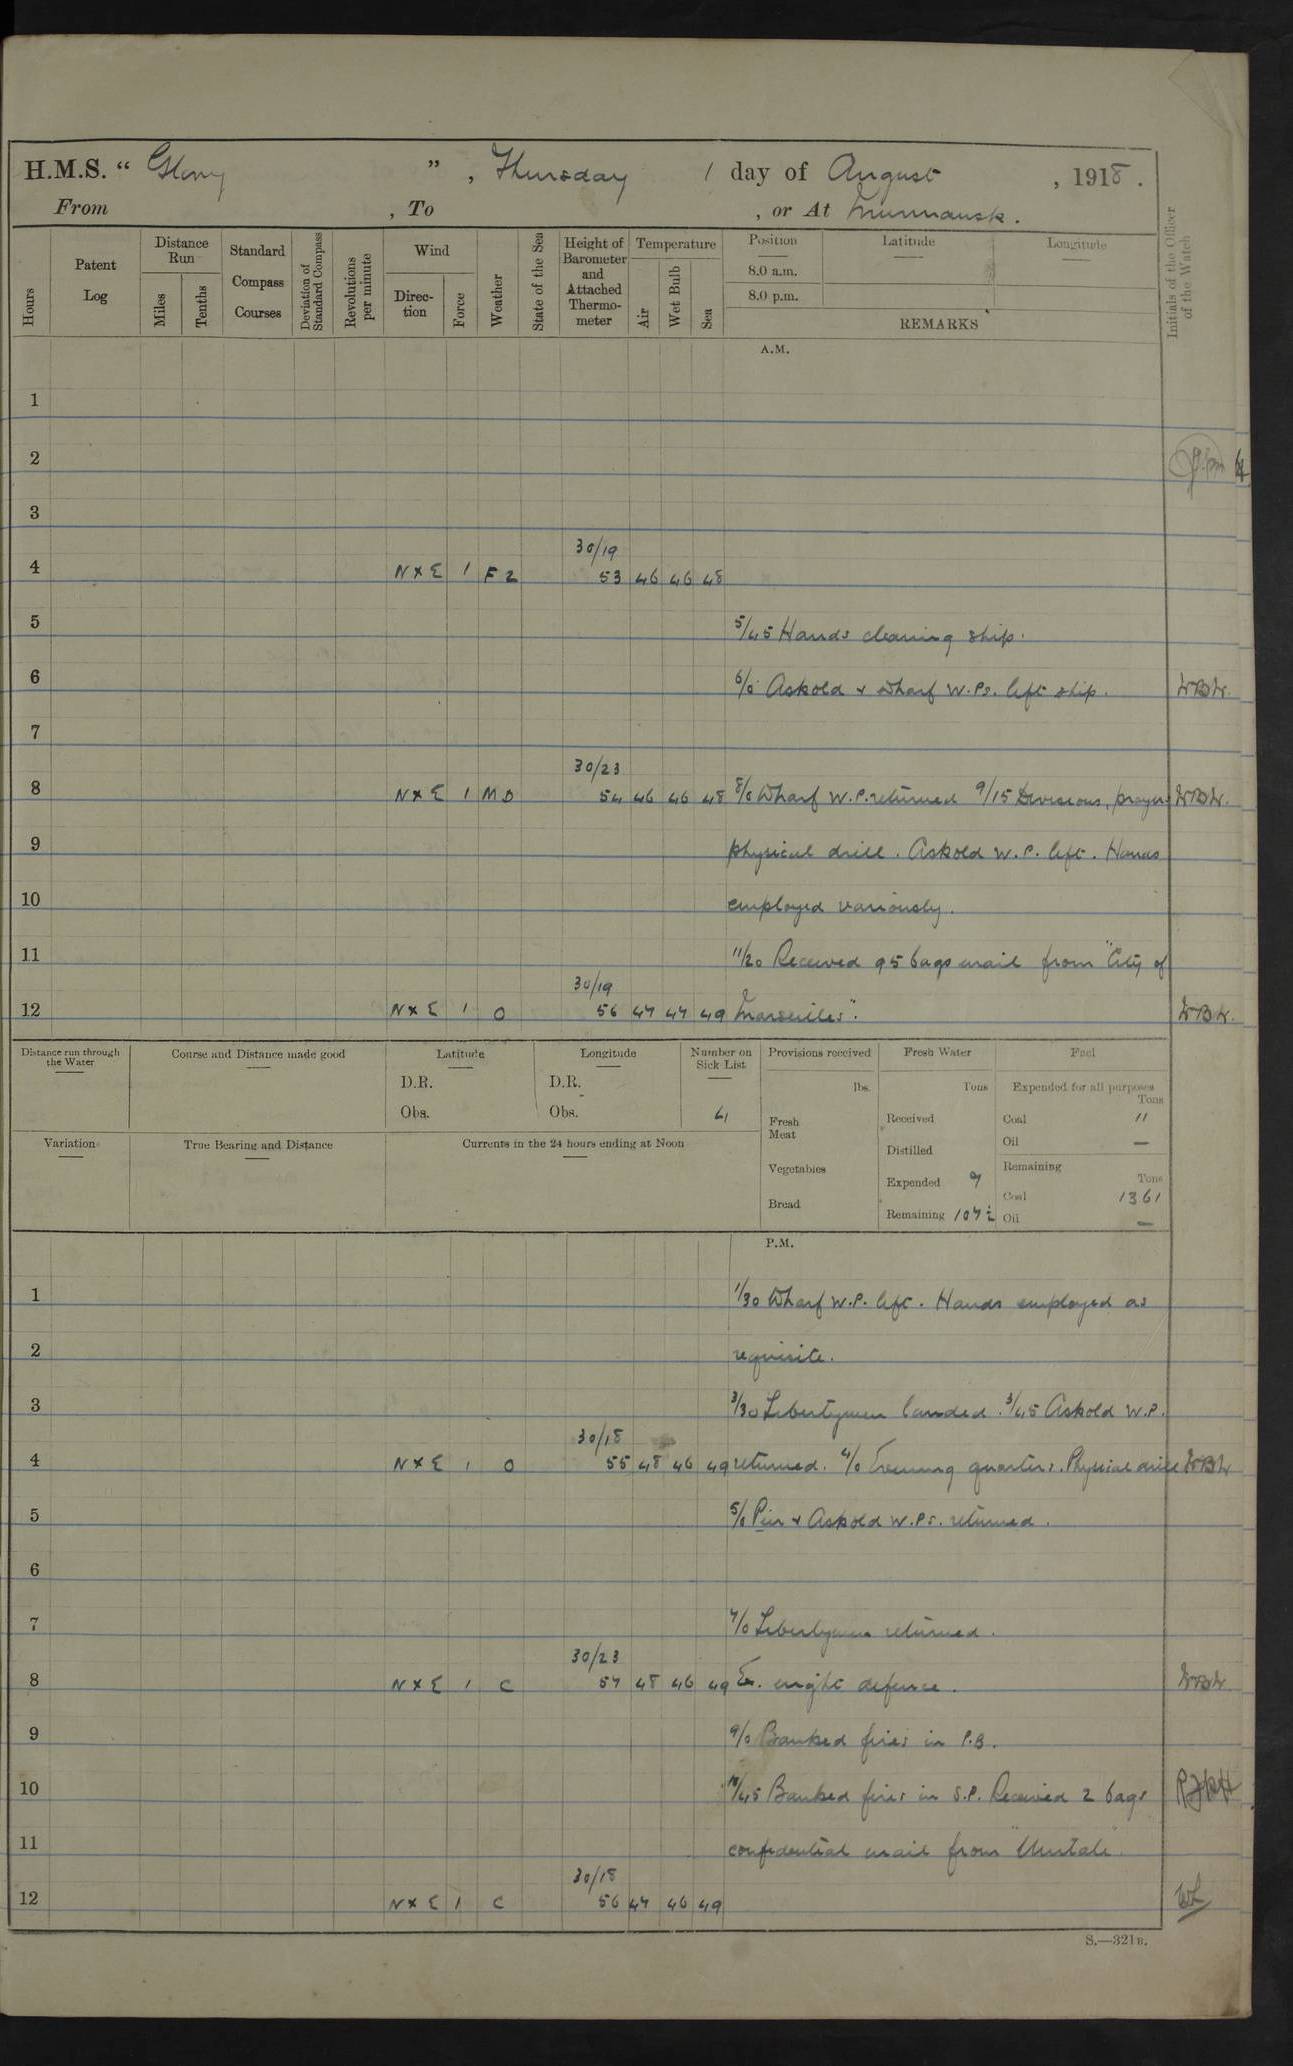 H.M.S. “ Glory ” , Thursday 1 day of August , 1918 .
From , To , or At Murmansk .
Hours
Patent Log
Distance Run
Miles
Tenths
Standard Compass Courses
Deviation of Standard Compass
Revolutions per minute
Wind
Direc-tion
Force
Weather
State of the Sea
Height of Barometer and Attached Thermo-meter
Temperature
Air
Wet Bulb
Sea
Position
8.0 a.m.
8.0 p.m.
Latitude
Longitude
REMARKS
Initials of the Officer of the Watch
A.M.
1
2
3
30/19
4 N x E 1 F Z 53 46 46 48
5 5/45 Hands cleaning ship.
6 6/0 Askold & Wharf W.Ps. left ship.
7
30/23
8 N x E 1 M O 54 46 46 48 8/0 Wharf W.P. returned 9/15 Divisions, prayers
9 physical drill. Askold W.P. left. Hands
10 employed variously.
11 11/20 Received 95 bags mail from "City of
30/19
12 N x E 1 O 56 47 47 49 Marseilles".
Distance run through the Water
Course and Distance made good
Latitude
D.R.
Obs.
Longitude
D.R.
Obs.
Number on Sick List
Provisions received
lbs.
Fresh Meat
Vegetables
Bread
Fresh Water
Tons
Received
Distilled
Expended 9
Remaining 107½
Fuel
Expended for all purposes
Tons
Coal 11
Oil —
Remaining
Tons
Coal 1361
Oil —
Variation
True Bearing and Distance
Currents in the 24 hours ending at Noon
P.M.
1 1/30 Wharf W.P. left. Hands employed as
2 requisite.
3 3/30 Libertymen landed. 3/45 Askold W.P.
30/18
4 N x E 1 O 55 48 46 49 returned. 4/0 Evening quarters. Physical drill
5 5/0 Pier & Askold W.Ps. returned.
6
7 7/0 Libertymen returned.
30/23
8 N x E 1 C 57 48 46 49 Ex. night defence.
9 9/0 Banked fires in P.B.
10 10/45 Banked fires in S.P. Received 2 bags
11 confidential mail from "Umtali"
30/18
12 N x E 1 C 56 47 46 49
S.—321B.